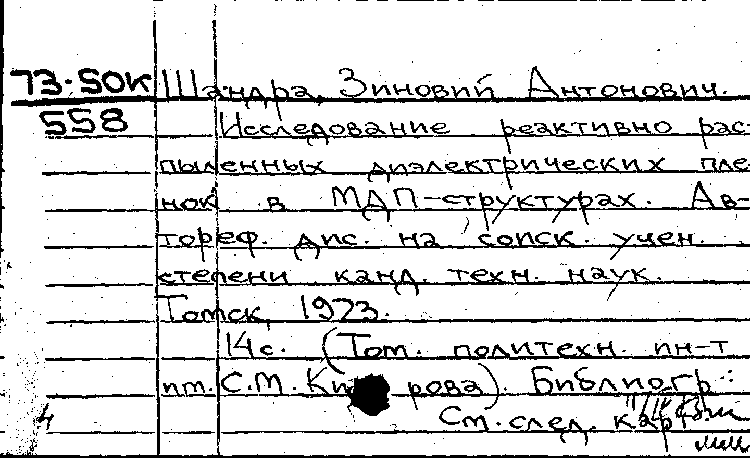 73-50к Шандра, Зиновий Антонович.
558 Исследование реактивно рас-
пыленных диэлектрических пле-
нок в МДП-структурах. Ав-
тореф. дис. на соиск. учен.
степени канд. техн. наук.
Томск, 1973.
14с. (Том. политехн. ин-т
им. С.М. Кирова). Библиогр.:
См. след. карт